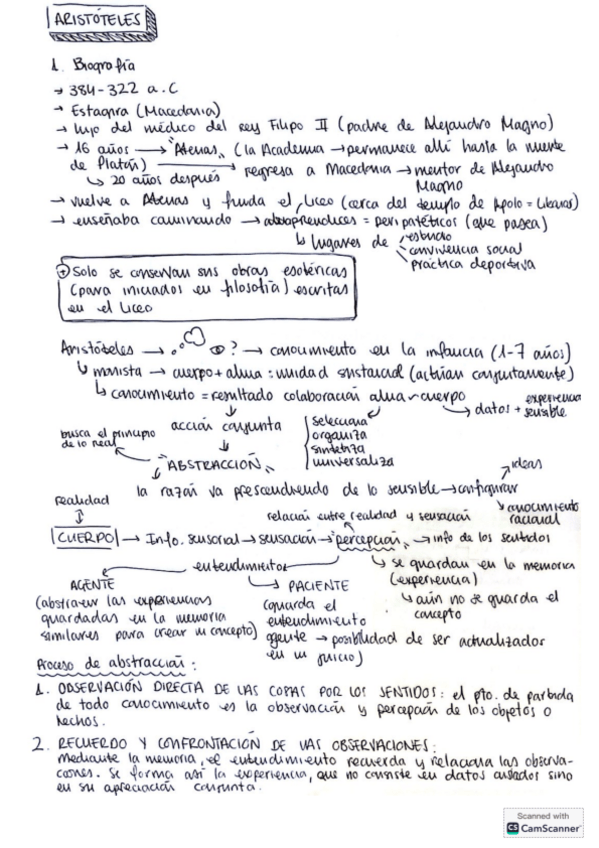 ARISTÓTELES
1. Biografía
→ 384-322 a.C
→ Estagira (Macedonia)
→ hijo del médico del rey Filipo II (padre de Alejandro Magno)
→ 16 años → "Atenas" (la Academia → permanece allí hasta la muerte
de Platón) → regresa a Macedonia → mentor de Alejandro
Magno
↳ 20 años después
→ vuelve a Atenas y funda el Liceo (cerca del templo de Apolo = )
→ enseñaba caminando → aprendices = peripatéticos (que pasea)
↳ lugares de estudio
convivencia social
práctica deportiva
Solo se conservan sus obras esotéricas
(para iniciados en filosofía) escritas
en el Liceo
Aristóteles → ? → conocimiento en la infancia (1-7 años)
↳ monista → cuerpo + alma = unidad sustancial (actúan conjuntamente)
↳ conocimiento = resultado colaboración alma-cuerpo
→ datos + experiencia
sensible
acción conjunta
selecciona
organiza
sintetiza
universaliza
busca el principio
de lo real
"ABSTRACCIÓN"
la razón va prescindiendo de lo sensible → configurar
ideas
conocimiento
racional
realidad
relación entre realidad y sensación
CUERPO → Info. sensorial → sensación → "percepción" → info de los sentidos
entendimiento
↳ se guardan en la memoria
(experiencia)
↳ aún no se guarda el
concepto
AGENTE
(abstraer las experiencias
guardadas en la memoria
similares para crear un concepto)
PACIENTE
(guarda el
entendimiento
agente → posibilidad de ser actualizador
en un juicio)
Proceso de abstracción:
1. OBSERVACIÓN DIRECTA DE LAS COPAS POR LOS SENTIDOS: el pto. de partida
de todo conocimiento es la observación y percepción de los objetos o
hechos.
2. RECUERDO Y CONFRONTACIÓN DE LAS OBSERVACIONES:
mediante la memoria, el entendimiento recuerda y relaciona las observa-
ciones. Se forma así la experiencia, que no consiste en datos aislados sino
en su apreciación conjunta.
Scanned with
CS CamScanner